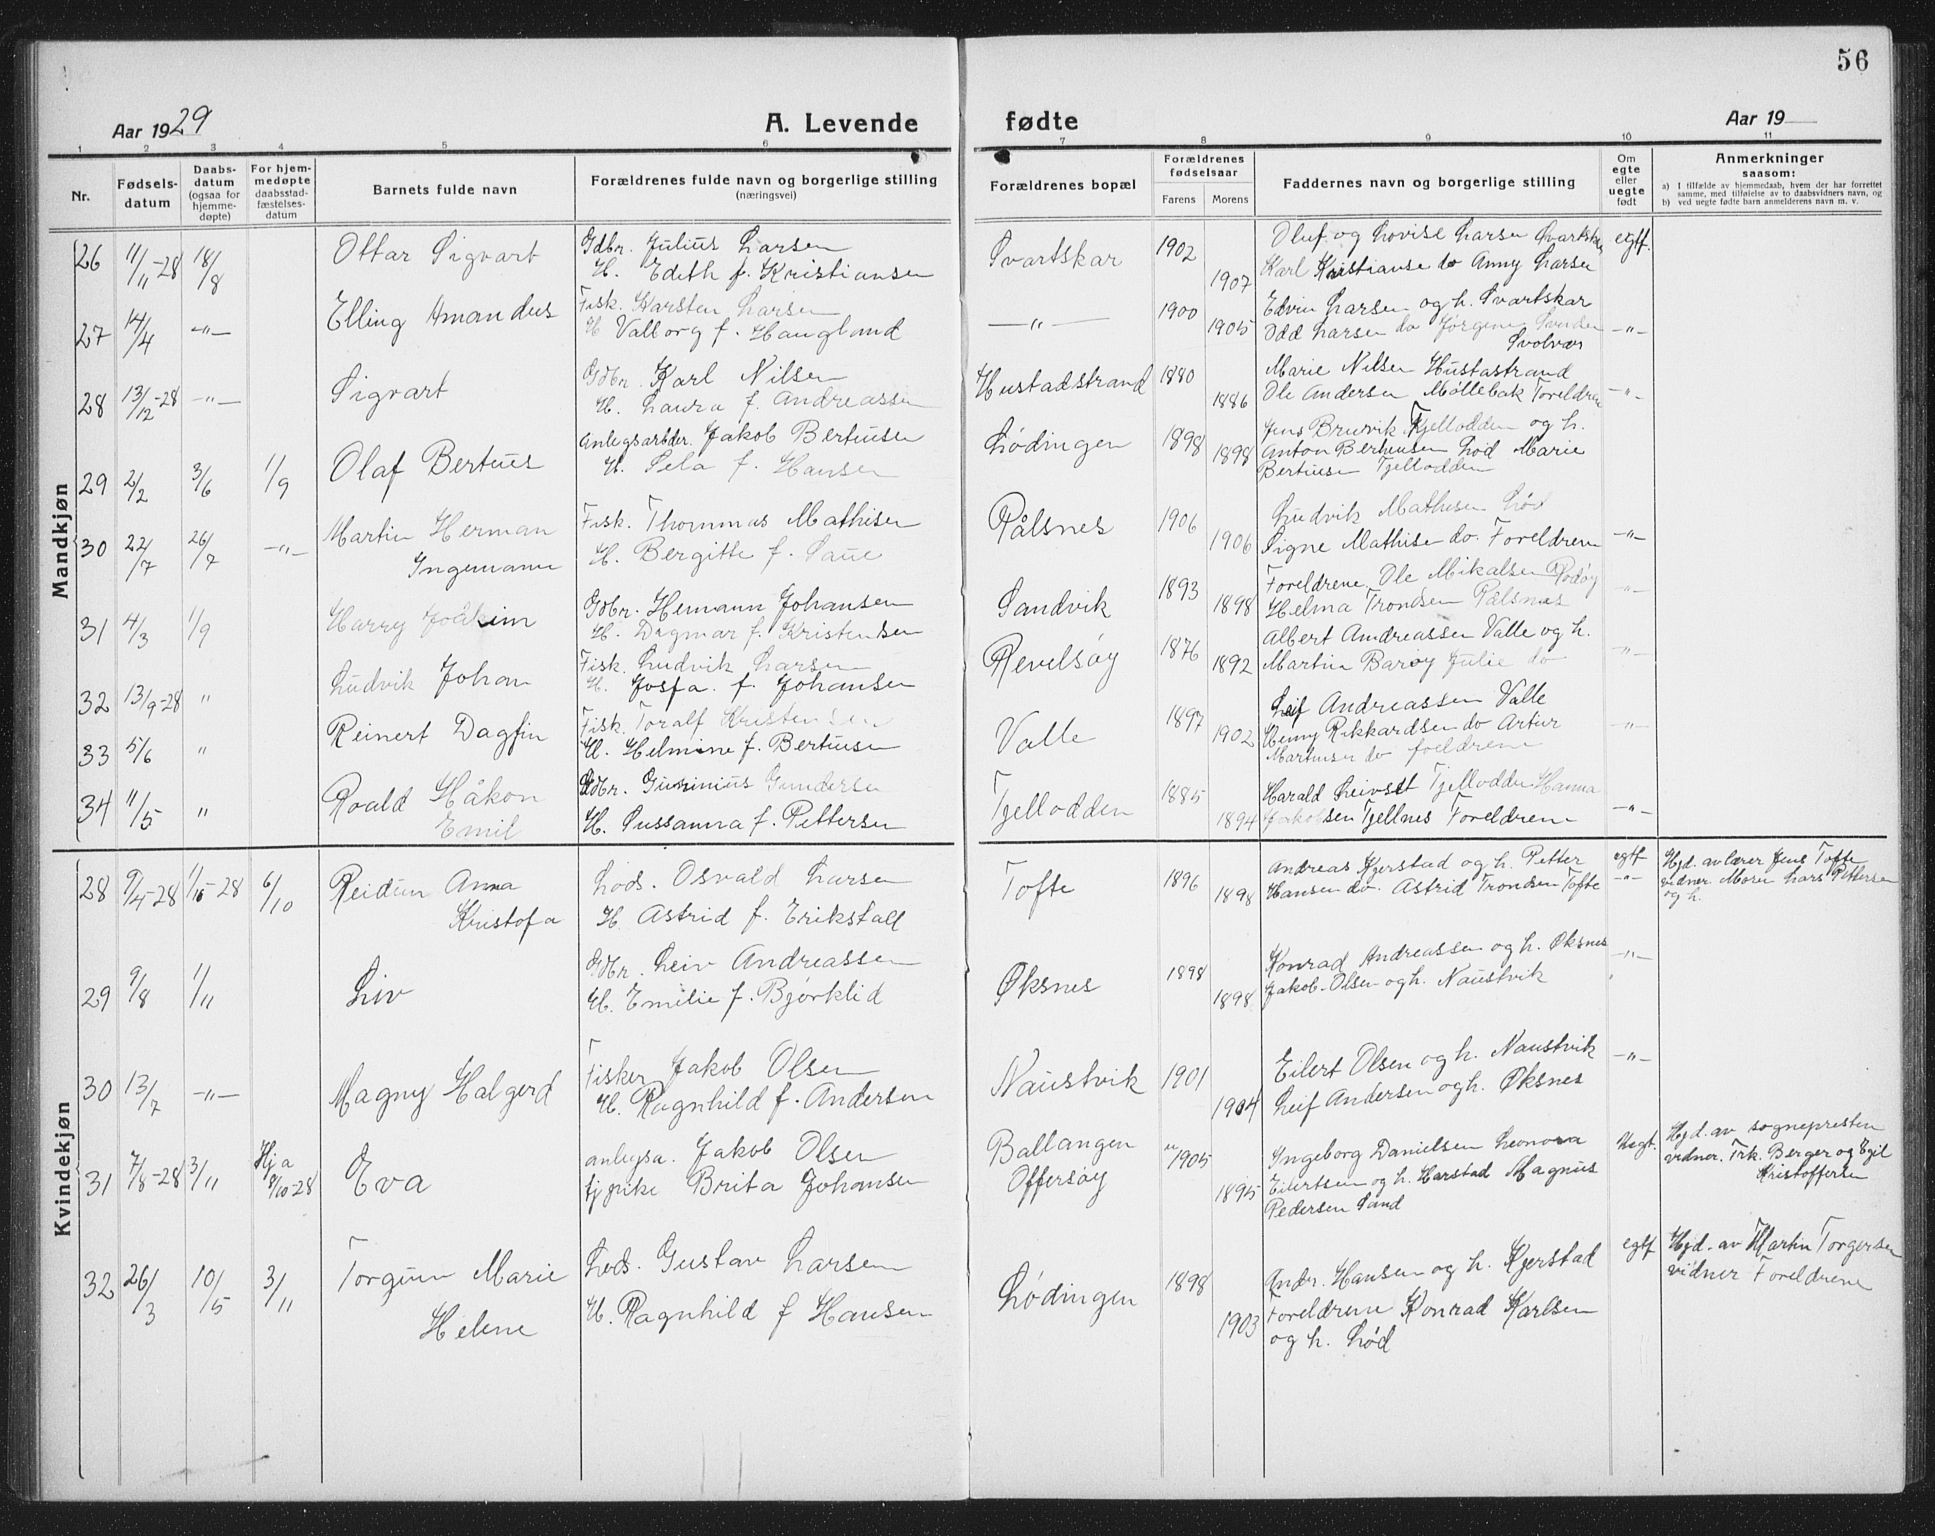 56
Aar 1929
A. Levende
fødte
Aar 19
1 2 3 4 5 6 7 8 9 10 11
Nr.
Fødsels-
datum
Daabs-
datum
(ogsaa for
hjemme-
døpte)
For hjem-
medøpte
daabsstad-
fæstelses-
datum
Barnets fulde navn
Forældrenes fulde navn og borgerlige stilling
(næringsvei)
Forældrenes bopæl
Forældrenes
fødselsaar
Farens Morens
Faddernes navn og borgerlige stilling
Om
egte
eller
uegte
født
Anmerkninger
saasom:
a) I tilfælde av hjemmedaab, hvem der har forrettet
samme, med tilføielse av to daabsvidners navn, og
b) ved uegte fødte barn anmelderens navn m. v.
Mandkjøn
26 11/11-28 18/8 Ottar Sigvart
Gdbr. Julius Larsen
H. Edith f. Kristiansen
Svartskar 1902 1907
Oluf og Lovise Larsen Svartskar
Karl Kristianse do Anny Larsen
egtf.
27 14/4 -"- Elling Amandus
Fisk. Karsten Larsen
H Valborg f. Haugland
-"- 1900 1905
Edvin Larsen og h. Svartskar
Odd Larsen do Jørgene
Svolvær
-"-
28 13/12-28 -"- Sigvart
Gdbr. Karl Nilsen
H. Laura f. Andreassen
Hustadstrand 1880 1886
Marie Nilsen Hustastrand
Ole Andersen Møllebak Foreldrene
-"-
29 2/2 3/6 1/9 Olaf Bertius
Anlegsarbder. Jakob Bertiusen
H. Sela f. Hansen
Lødingen 1898 1898
Jens Bruvik Fjellodden og h.
Anton Bertiusen Lød Marie
Bertiusen Tjellodden
30 22/7 26/7 -"- Martin Herman
Ingemann
Fisk. Thommas Mathisen
H. Bergitte f. Saue
Pålsnes 1906 1906
Ludvik Mathisen Lød
Signe Mathisen do. Foreldrene
-"-
31 4/3 1/9 Harry Joakim
Gdbr. Hemann Johansen
H. Dagmar f. Kristensen
Sandvik 1893 1898
Foreldrene Ole Mikalsen Rodøy
Helma Trondsen Pålsnes
-"-
32 13/9-28 " Ludvik Johan
Fisk. Ludvik Larsen
H. Josfa. f. Johansen
Revelsøy 1876 1892
Albert Andreassen Valle og h.
Martin Barøy Julie do
-"-
33 5/6 " Reinert Dagfin
Fisk. Toralf Kristensen
H. Helmine f. Bertiusen
Valle 1897 1902
Leif Andreassen Valle
Henny Rikkardsen do Artur
Marthisen do foeldrene
-"-
34 11/5 " Roald Håkon
Emil
Gdbr. Guninius Gundersen
H. Sussanna f. Pettersen
Tjellodden 1885 1894
Harald Leivset Tjellodden Hanna
Jakobsen Tjellnes Foreldrene
-"-
Kvindekjøn
28 9/4-28 1/10-28 6/10 Reidun Anna
Kristofa
Lods. Osvald Larsen
H. Astrid f. Erikstad
Tofte 1896 1898
Andreas Kjerstad og h. Petter
Hansen do. Astrid Trondsen Tofte
egtf
-"-
Hjd. av lærer Jens Tofte
vidner Moren Lars Pettersen
og h.
29 9/8 1/11 Liv
Gdbr. Leiv Andreassen
H. Emilie f. Bjørklid
Øksnes 1898 1898
Konrad Andreassen og h. Øksnes
Jakob Olsen og h. Naustvik
-"-
30 13/7 -"- Magny Halgerd
Fisker Jakob Olsen
H. Ragnhild f. Andersen
Naustvik 1901 1904
Eilert Olsen og h. Naustvik
Leif Andersen og h. Øksnes
-"-
31 7/8-28 3/11 Hja
9/10-28 Eva
anlegsa. Jakob Olsen
tjpike Brita Johansen
Ballangen
Offersøy
1905 1895
Ingeborg Danielsen Leonora
Eilertsen og h. Harstad Magnus
Pedersen Sand
Uegt.
Hjd. av sognepresten
vidner. Frk. Berger og Egil
Kristoffersen
32 26/3 10/5 3/11 Torgun Marie
Helene
Lods. Gustav Larsen
H. Ragnhild f Hansen
Lødingen 1898 1903
Andr. Hansen og h. Kjerstad
Foreldrene Konrad Karlsen
og h. Lød
egtf
Hjd. av Martin Torgersen
vidner Foreldrene